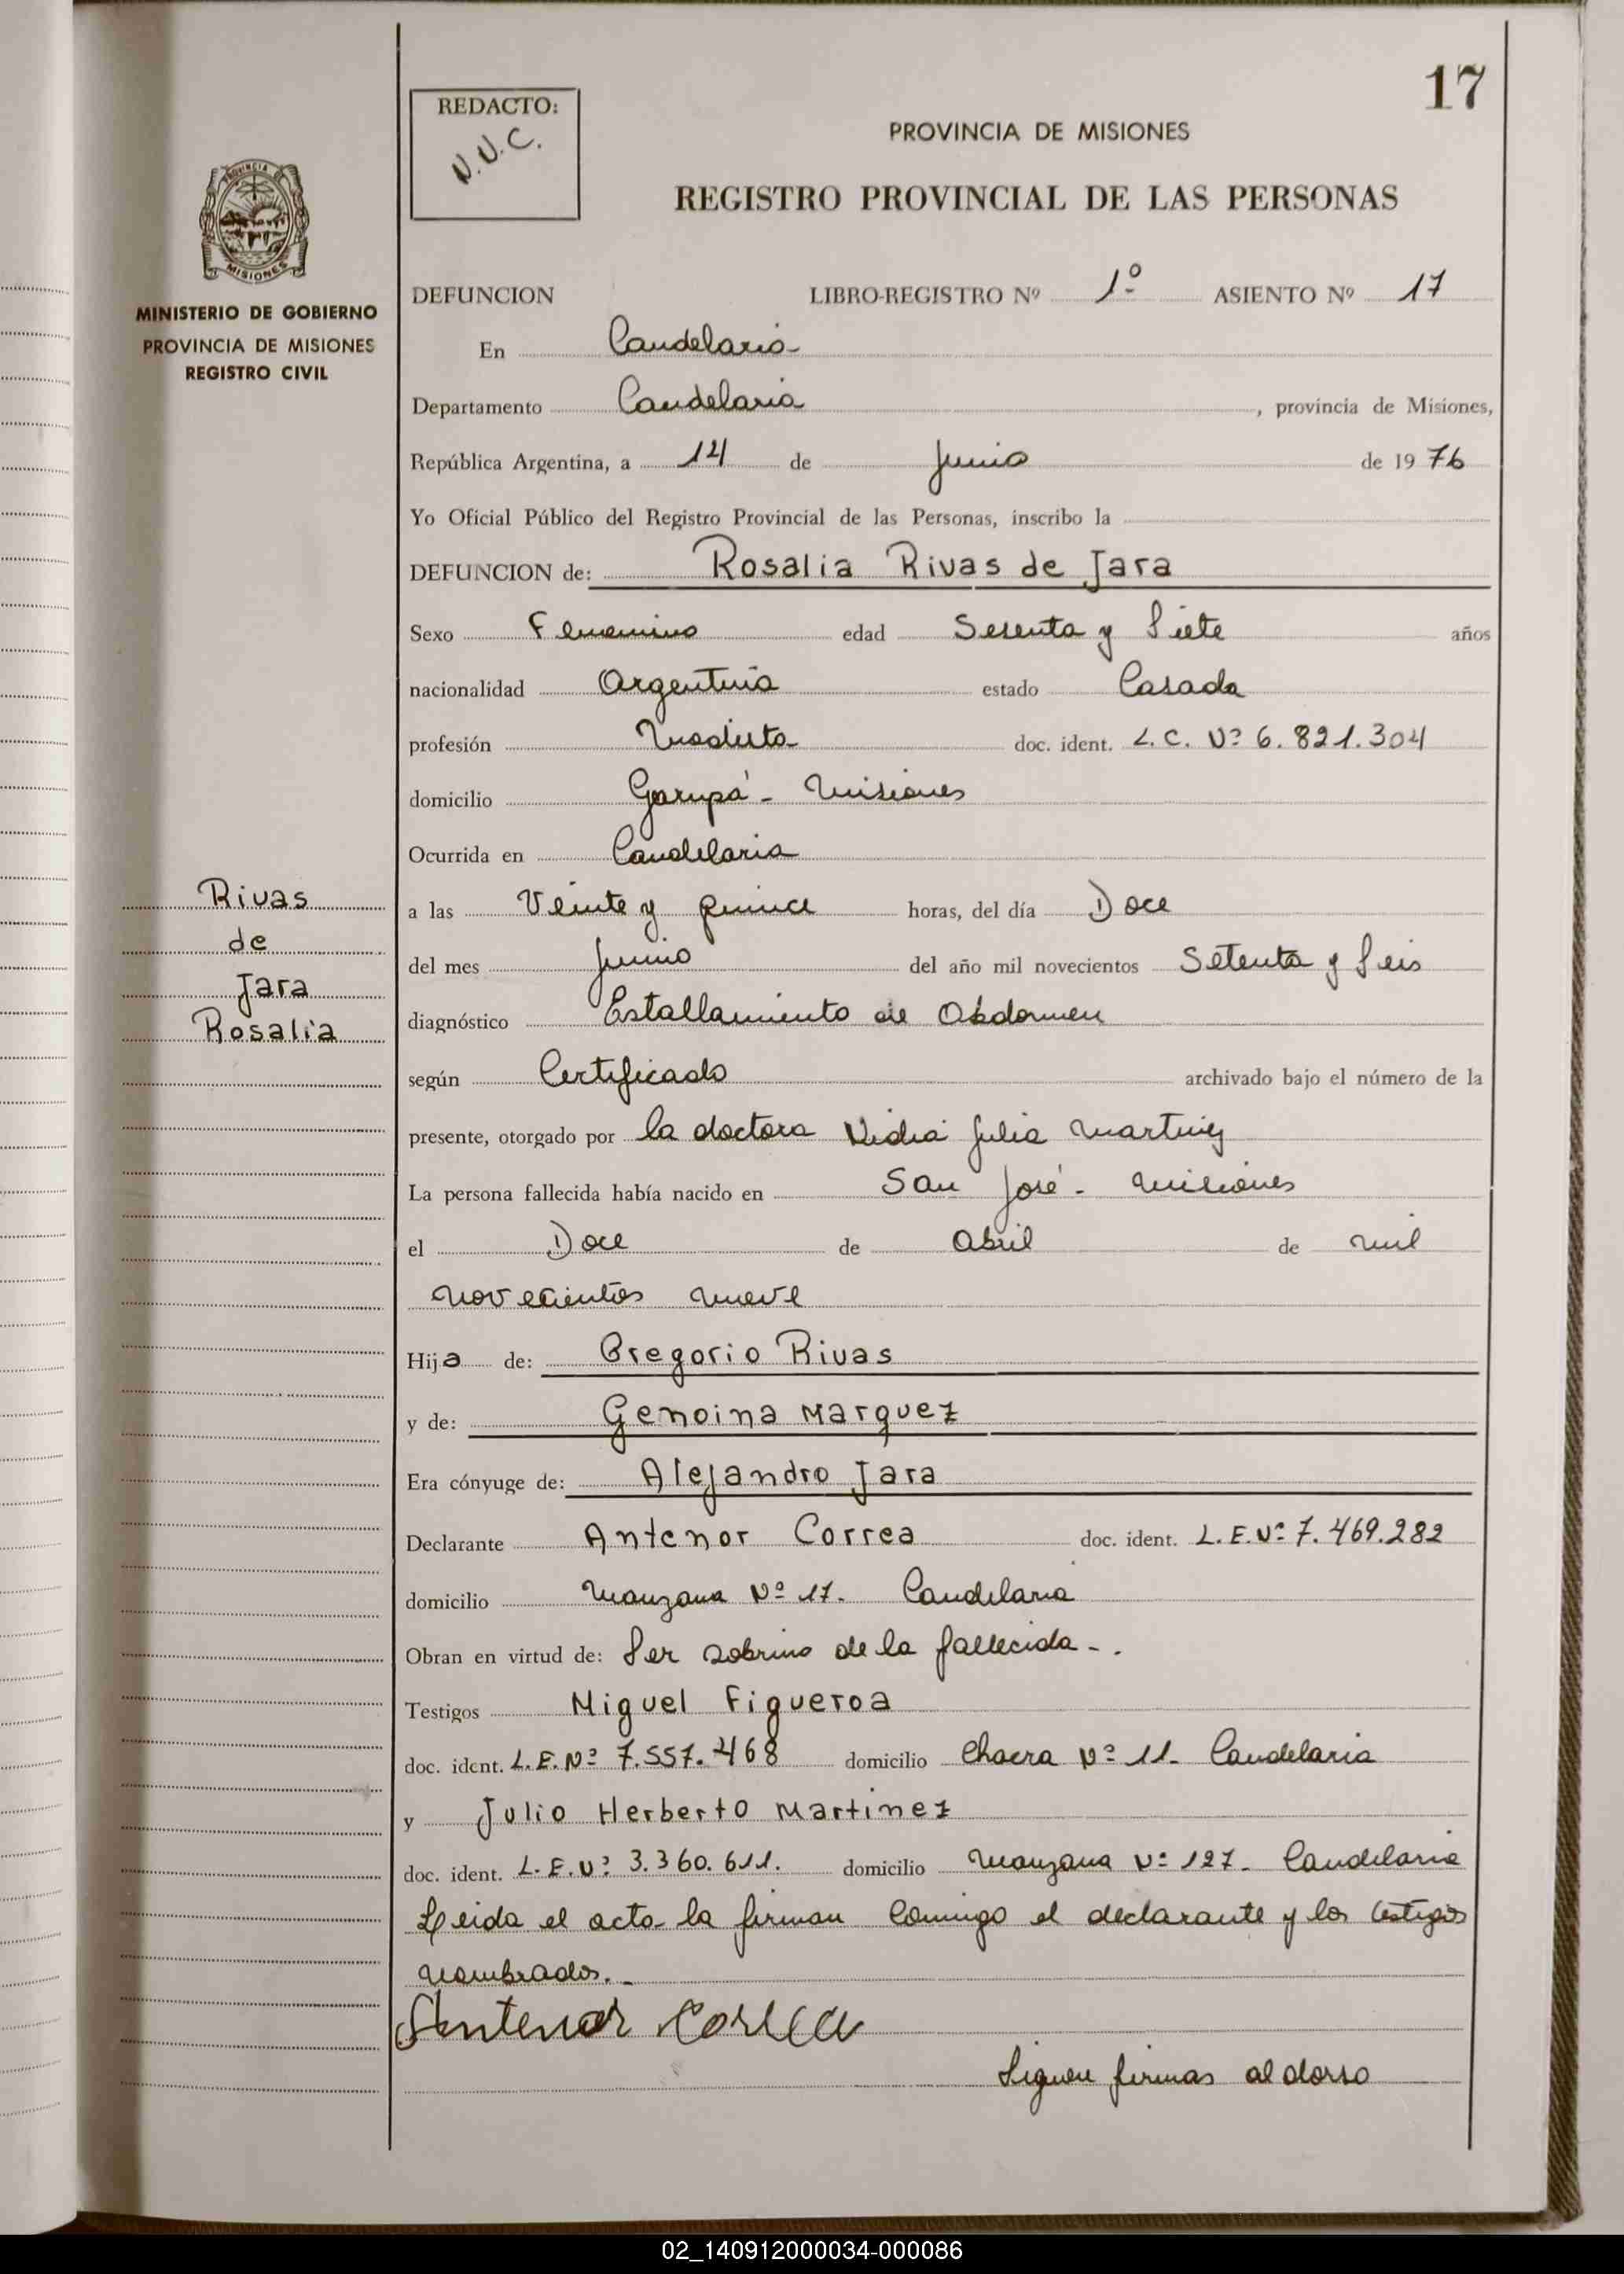 17
REDACTO:
N.V.C.
PROVINCIA DE MISIONES
REGISTRO PROVINCIAL DE LAS PERSONAS
PROVINCIA DE
MISIONES
MINISTERIO DE GOBIERNO
PROVINCIA DE MISIONES
REGISTRO CIVIL
DEFUNCION LIBRO-REGISTRO Nº 1º ASIENTO Nº 17
En Candelaria
Departamento Candelaria, provincia de Misiones,
República Argentina, a 14 de Junio de 1976
Yo Oficial Público del Registro Provincial de las Personas, inscribo la
DEFUNCION de: Rosalia Rivas de Jara
Sexo Femenino edad Sesenta y Siete años
nacionalidad Argentina estado Casada
profesión Modista doc. ident. L.C. Nº 6.821.304
domicilio Garupá - Misiones
Ocurrida en Candelaria
a las Veinte y quince horas, del día Doce
del mes Junio del año mil novecientos Setenta y Seis
diagnóstico Estallamiento de Abdomen
según Certificado archivado bajo el número de la
presente, otorgado por la doctora Nidia Julia Martinez
La persona fallecida había nacido en San José - Misiones
el Doce de Abril de mil
novecientos nueve
Hija de: Gregorio Rivas
y de: Genoina Marquez
Era cónyuge de: Alejandro Jara
Declarante Antenor Correa doc. ident. L.E. Nº 7.469.282
domicilio Manzana Nº 17. Candelaria
Obran en virtud de: Ser sobrino de la fallecida-.
Testigos Miguel Figueroa
doc. ident. L.E. Nº 7.557.468 domicilio Chacra Nº 11- Candelaria
y Julio Herberto Martinez
doc. ident. L.E. Nº 3.360.611. domicilio Manzana Nº 127- Candelaria
Leida el acta la firman conmigo el declarante y los testigos
nombrados.-
Antenor Correa
Siguen firmas al dorso
Rivas
de
Jara
Rosalia
02_140912000034-000086